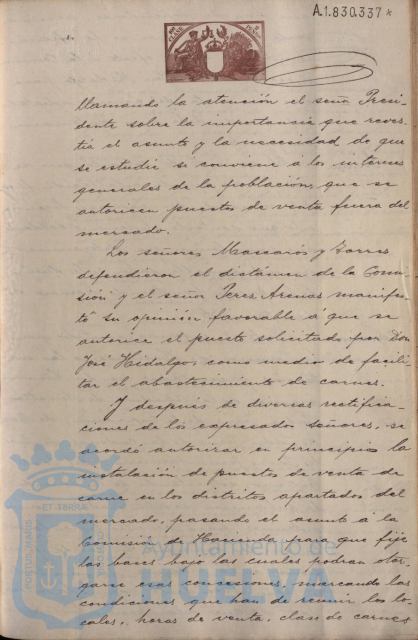 A.1.830.337*
llamando la atención el señor Presi-
dente sobre la importancia que reves-
tía el asunto y la necesidad de que
se estudie si conviene á los intereses
generales de la población, que se
autoricen puestos de venta fuera del
mercado.
Los señores Mascarós y Torres
defendieron el dictámen de la Comi-
sión y el señor Peres Arenas manifes-
tó su opinión favorable á que se
autorice el puesto solicitado por Don
José Hidalgo, como medio de facili-
tar el abastecimiento de carnes.
Y después de diversas rectifica-
ciones de los expresados señores, se
acordó autorizar en principio la
instalación de puestos de venta de
carne en los distritos apartados del
mercado, pasando el asunto á la
Comisión de Hacienda para que fije
las bases bajo las cuales podran otor-
garse esas concesiones, marcando las
condiciones que han de reunir los lo-
cales, horas de venta, clase de carnes
PORTUS MARIS
ET TERRÆ
Ayuntamiento de
HUELVA